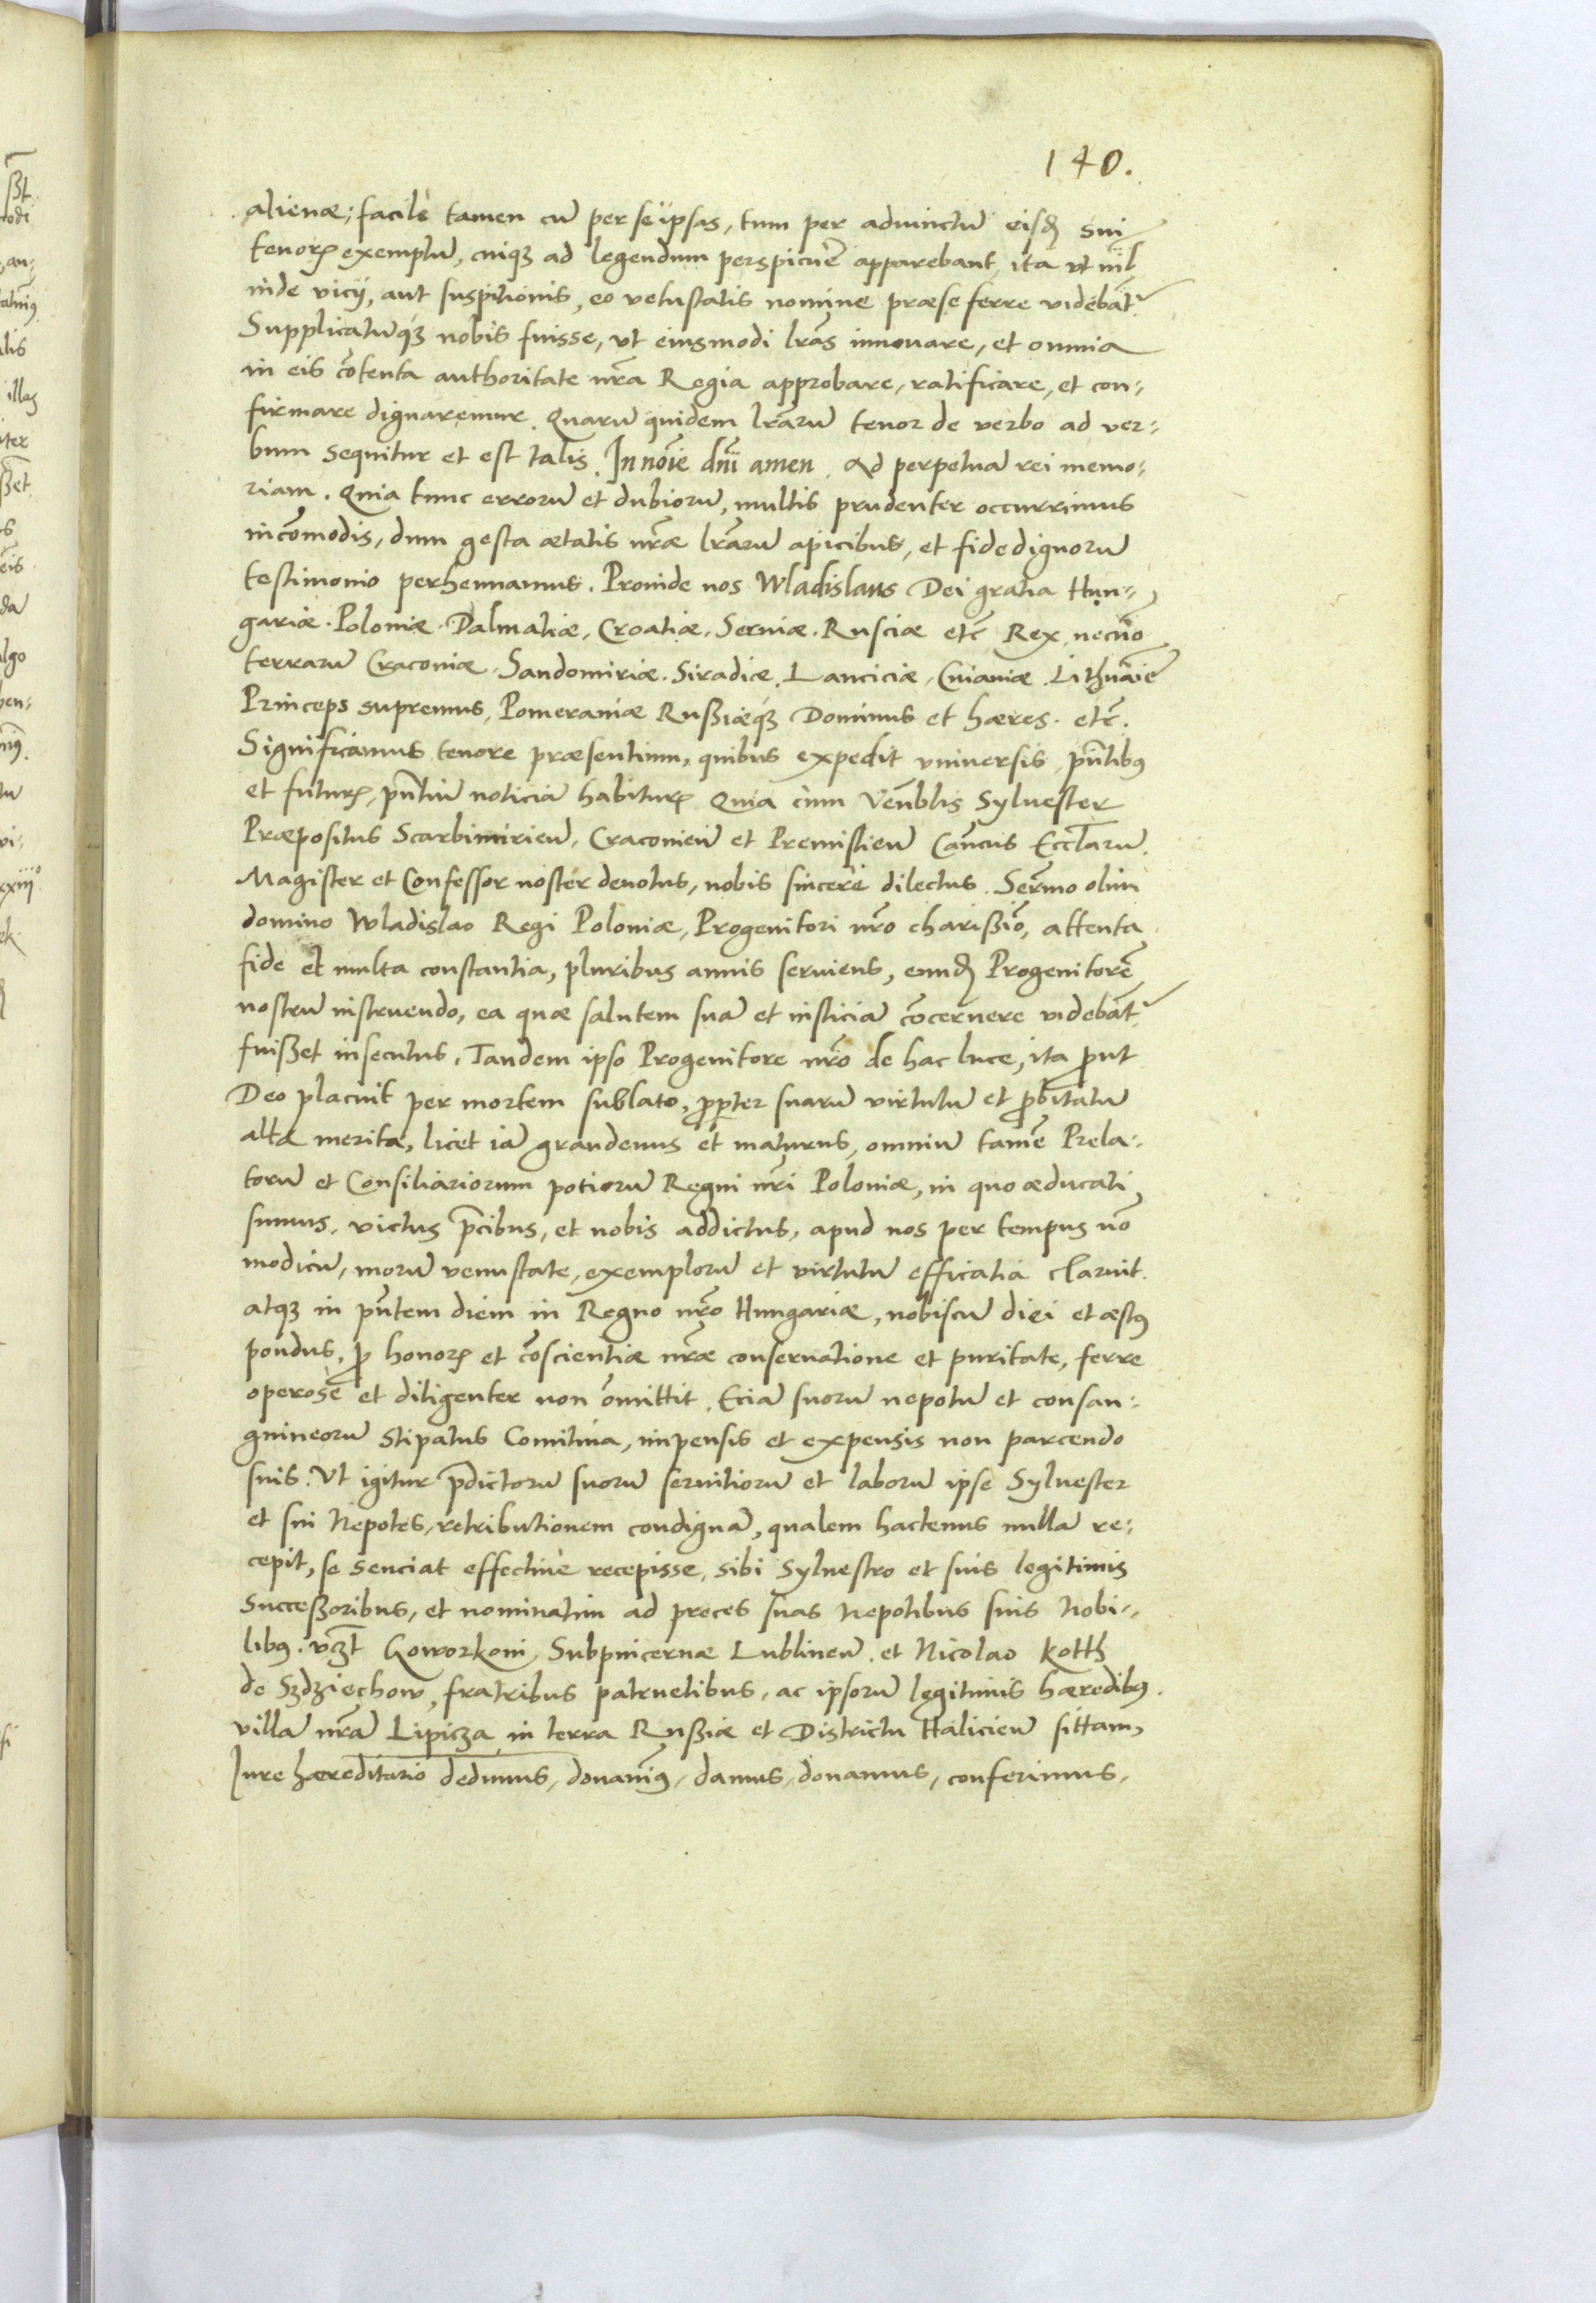 140.
alienæ; facile tamen cū per se ipsas, tum per adiunctū eisđ sui
tenoris exemplū, cuiqꝫ ad legendum perspicuè apparebant, ita ut nil
inde vicij, aut suspitionis, eo vetustatis nomine præse ferre videbāt.
Supplicatūqꝫ nobis fuisse, vt eiusmodi lrãs innouare, et omnia
in eis cõtenta authoritate nrã Regia approbare, ratificare, et con-
firmare dignaremur. Quarū quidem lrãrū tenor de verbo ad ver-
bum sequitur et est talis. In noĩe dñi amen. Ad perpetuā rei memo-
riam. Quia tunc errorū et dubiorū, multis prudenter occurrimus
incõmodis, dum gesta ætatis nrãe lrãrū apicibus, et fidedignorū
testimonio perhennamus. Proinde nos Wladislaus Dei gratia Hun-
gariæ. Poloniæ. Dalmatiæ, Croatiæ. Seruiæ. Rusciæ etc̃ Rex, necnõ
terrarū Cracoviæ. Sandomiriæ. Siradiæ. Lanciciæ, Cuiauiæ. Lithuaĩe
Princeps supremus, Pomeraniæ Rußiæqꝫ Dominus et hæres. etc̃.
Significamus tenore præsentium, quibus expedit vniuersis, pñtibꝰ
et futuris, pñtiū noticiā habituris Quia cum Venẽblis Syluester
Præpositus Scarbimirieñ, Cracovieñ et Premislieñ Cãncus Ecclarū.
Magister et Confessor noster deuotus, nobis sincerè dilectus. Sermõ olim
domino Wladislao Regi Poloniæ, Progenitori nrõ charißiõ, attenta
fide et multa constantia, pluribus annis seruiens, eunđ Progenitorẽ
nostrū instruendo, ea quæ salutem suā et iusticiā cõcernere videbāt
fuißet insecutus. Tandem ipso Progenitore nrõ de hac luce, ita ꝓut
Deo placuit per mortem sublato, ꝓpter suarū virtutū et ꝓbitatū
alta merita, licet iā grandeuus et maturus, omniū tamẽ Prela-
torū et Consiliariorum potiorū Regni nrĩ Poloniæ, in quo æducati
sumus. victus p̃cibus, et nobis addictus, apud nos per tempus nõ
modicū, morū venustate, exemplorū et virtutū efficatia claruit.
atqꝫ in pñtem diem in Regno nrõ Hungariæ, nobiscū diei et æstꝰ
pondus, ꝓ honoris et cõscientiæ nrãe conseruatione et puritate, ferre
operosè et diligenter non õmittit. Eciā suorū nepotū et consan-
guineorū stipatus Comitiua, impensis et expensis non parcendo
suis. Vt igitur p̃dictorū suorū seruitiorū et laborū ipse Syluester
et sui Nepotes, retributionem condignā, qualem hactenus nullā re-
cepit, se senciat effectiuè recepisse, sibi Syluestro et suis legitimis
Succeßoribus, et nominatim ad preces suas Nepotibus suis Nobi-
libꝰ. vꝫt Goworkoni, Subpincernæ Lublineñ. et Nicolao Kotth
de Szdziechow, fratribus patruelibus, ac ipsorū legitimis hæredibꝰ.
villā nrãm Lipicza in terra Rußiæ et Districtu Halicieñ sittam,
Iure hæreditario dedimus, donauimꝰ, damus, donamus, conferimus.